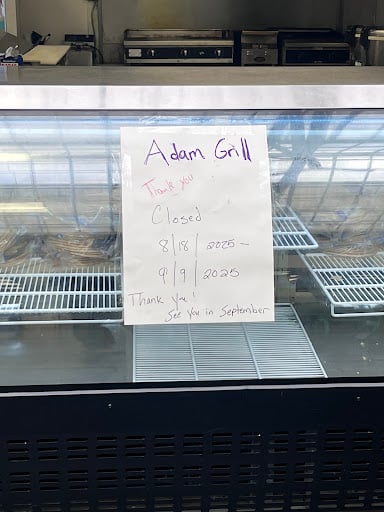 Adam Grill
Thank you
Closed
8/18/2025-
9/9/2025
Thank you!
See you in September